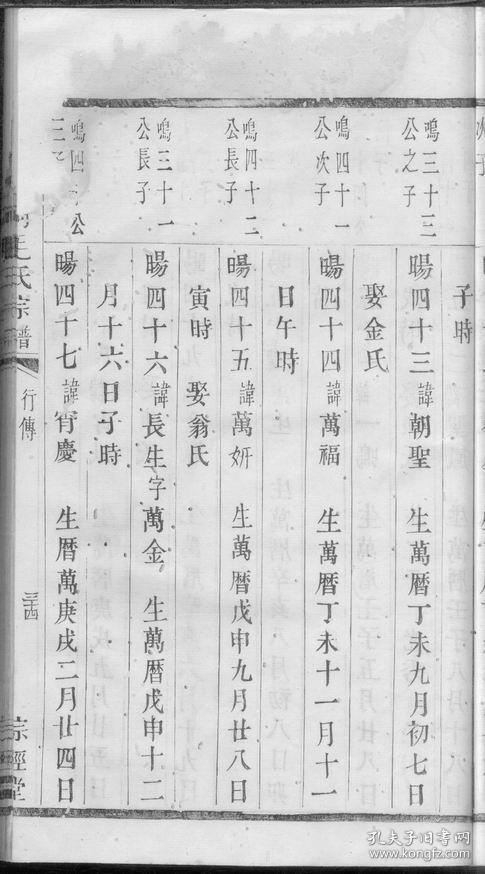 次子
子時
鳴三十三公之子
暘四十三 諱朝聖 生萬曆丁未九月初七日
娶金氏
鳴四十一公次子
暘四十四 諱萬福 生萬曆丁未十一月十一
日午時
鳴四十二公長子
暘四十五 諱萬妍 生萬曆戊申九月廿八日
寅時 娶翁氏
鳴三十一公長子
暘四十六 諱長生字萬金 生萬曆戊申十二
月十六日子時
鳴四公
暘四十七 諱宵慶 生曆萬庚戌二月廿四日
氏宗譜
行傳
三四
宗經堂
孔夫子旧书网
www.kongfz.com